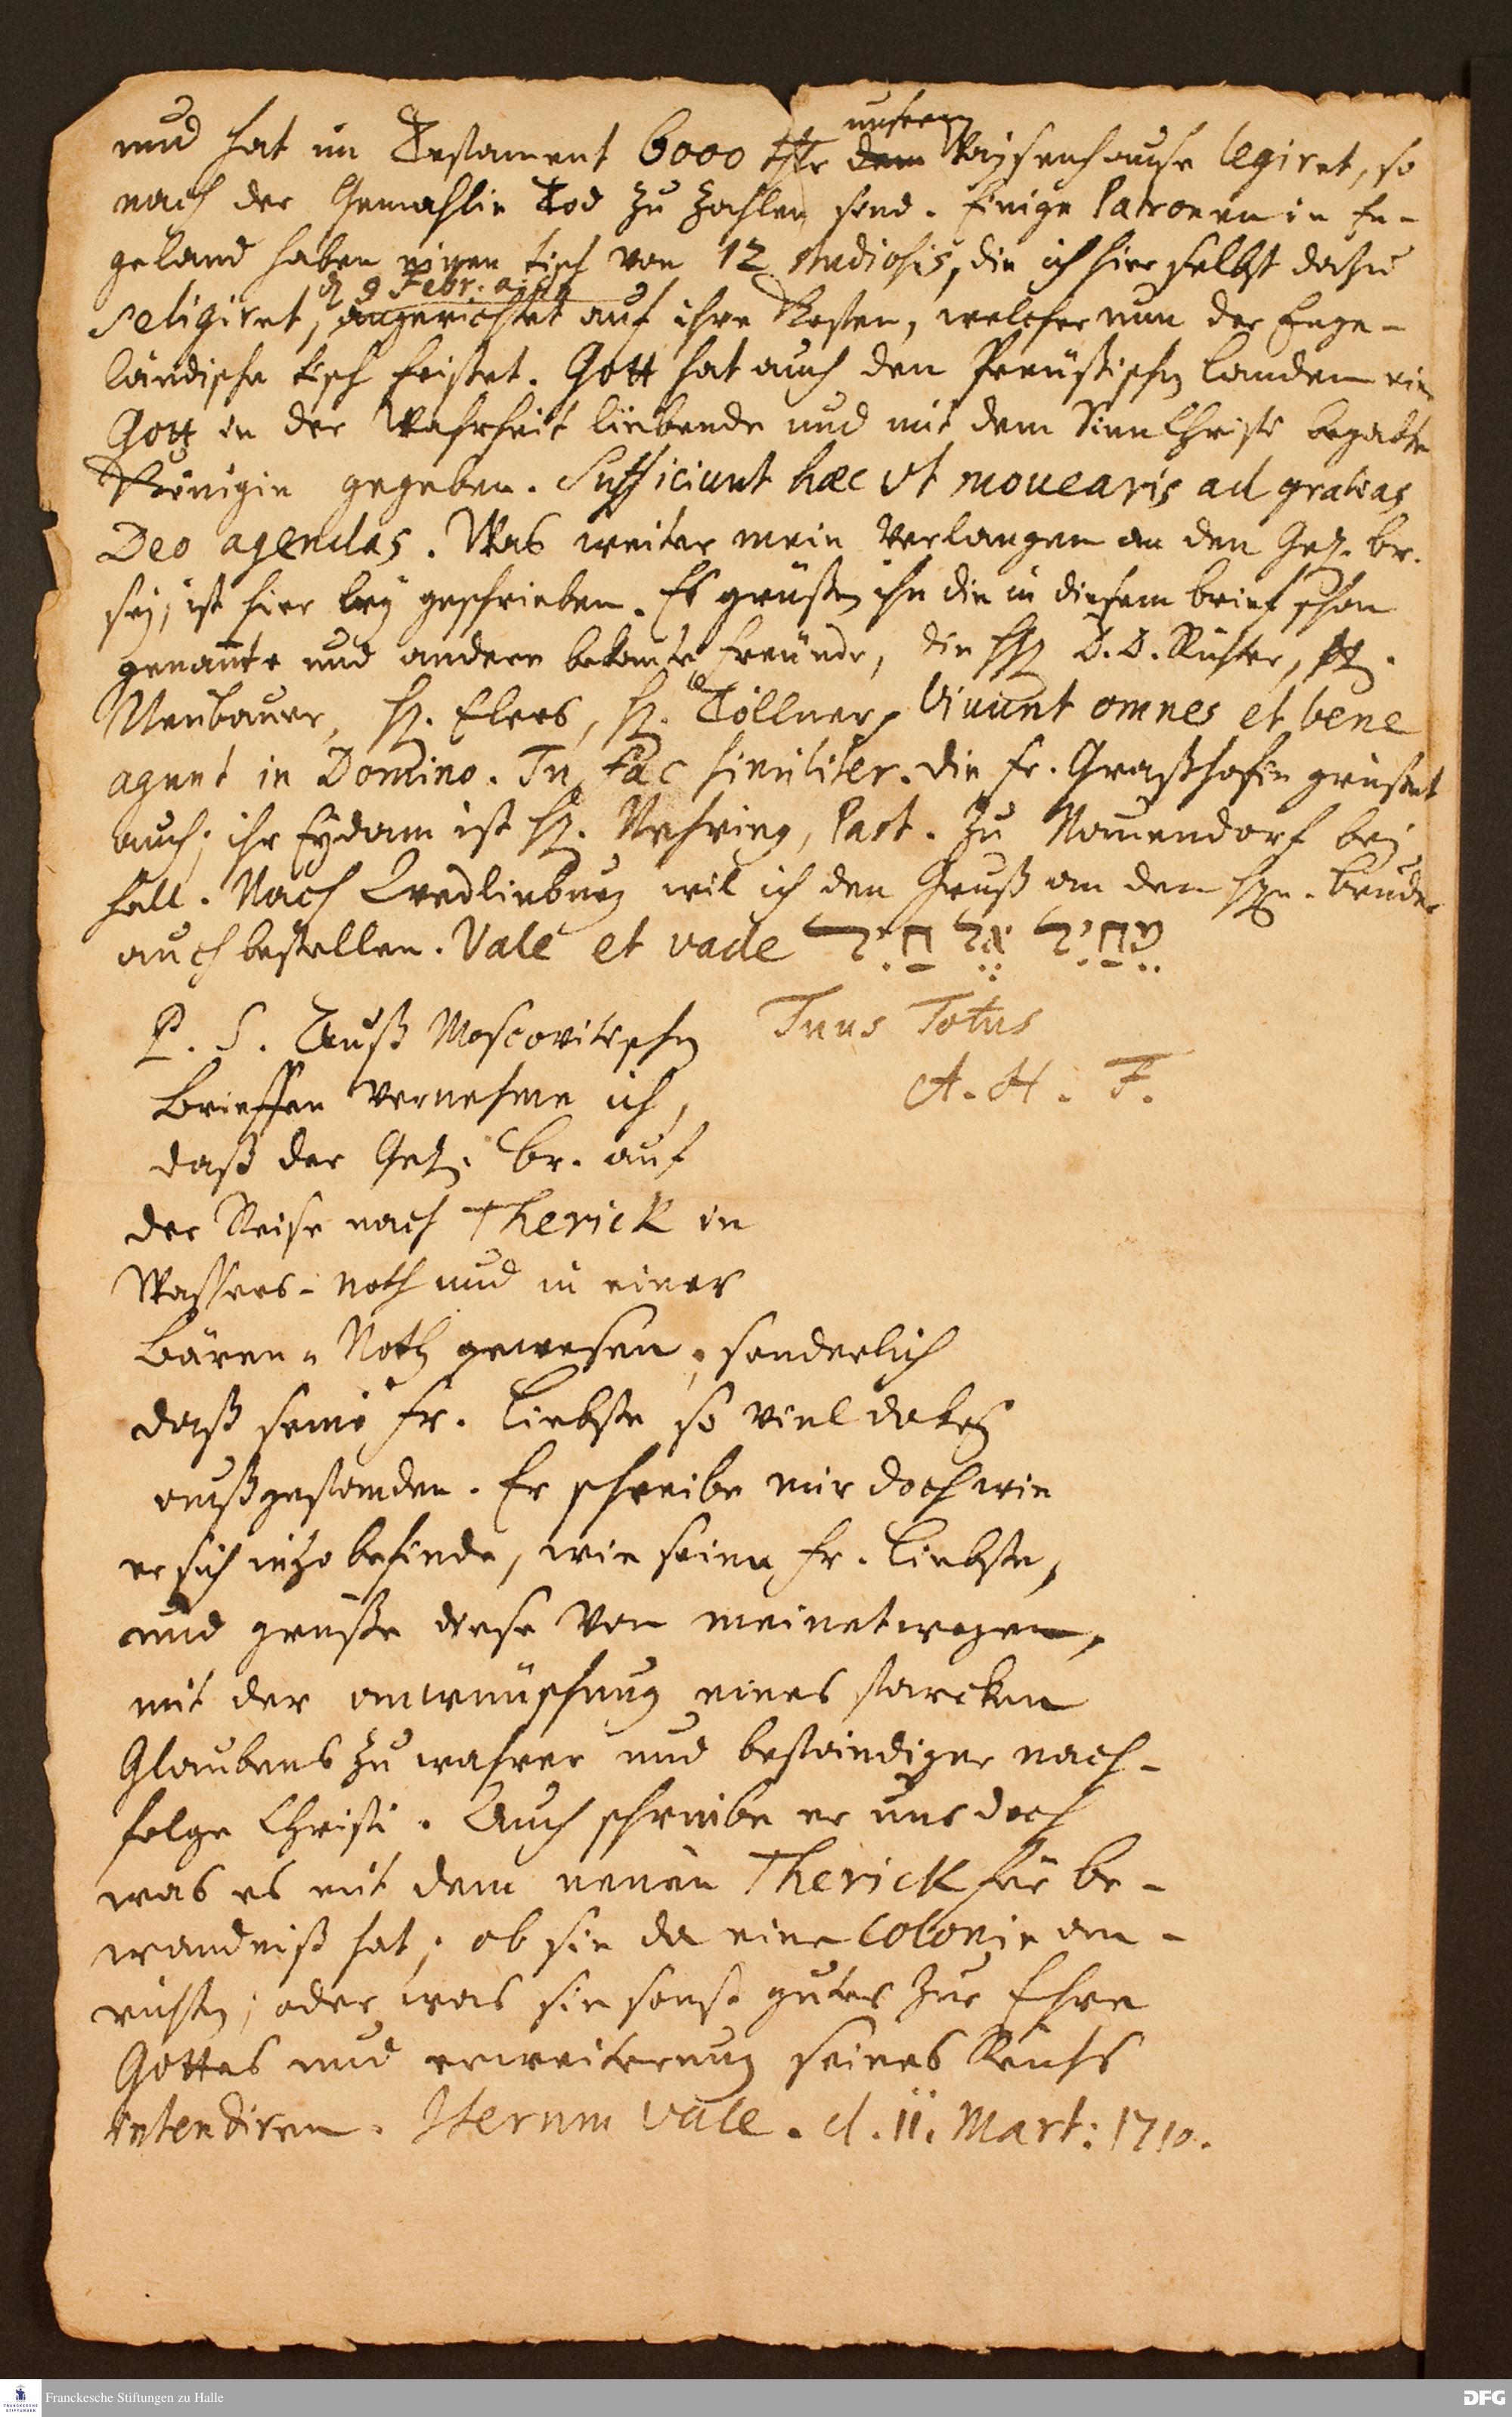 und hat im Testament 6000 thlr dem unserm Waysenhause legiret, so
nach der Gemahlin Tod zu zahlen sind. Einige Patronen in En-
geland haben einen tisch von 12 studiosis, die ich hier selbst dazu
seligiret, d 9 Febr. a. c. angerichtet auf ihre Kosten, welcher nun der Enge-
ländische tisch heisset. Gott hat auch den Preußischen landen eine
Gott in der Wahrheit liebende und mit dem Sinn Christi begabte
Königin gegeben. Sufficiunt hæc vt movearis ad gratias
Deo agendas. Was weiter mein Verlangen an den Gel. br.
sey, ist hier bey geschrieben. Es grüßen ihn die in diesem brief schon
genante und andere bekante freunde, die HH D. D. Richter, H.
Neubauer, H. Elers, H. Töllner, Vivunt omnes et bene
agunt in Domino. Tu fac similiter. die fr. Graßhofin grüßet
auch; ihr Eydam ist H. Nehring, Past. zu Nauendorf bey
Hall. Nach Qvedlinburg wil ich den Gruß an den Hrn. bruder
auch bestellen. Vale et vade מחיל אל חיל
Tuus Totus
A. H. F.
P. S. Auß Moscovitischen
brieffen vernehme ich,
daß der Gel. br. auf
der Reise nach Therick in
Wassers-noth und in einer
bären-Noth gewesen, sonderlich
daß seine fr. liebste so viel dabey
außgestanden. Er schreibe mir doch wie
er sich ietzo befinde, wie seine fr. liebste,
und grüße diese von meinetwegen,
mit der anwünschung eines starcken
Glaubens zu wahrer und beständiger nach-
folge Christi. Auch schreibe er uns doch
was es mit dem neuen Therick für be-
wandniß hat; ob sie da eine Colonie an-
richten; oder was sie sonst gutes zur Ehre
Gottes und erweiterung seines Reichs
intendiren. Iterum vale. d. 11. Mart: 1710.
Franckesche Stiftungen zu Halle
DFG